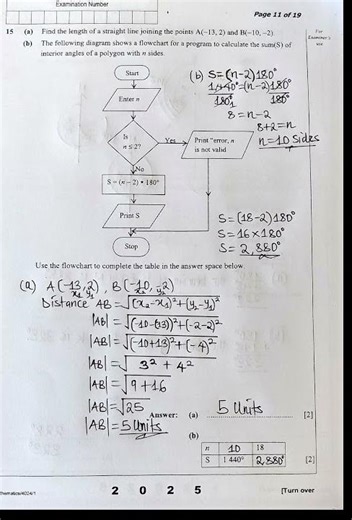 Examination Number
Page 11 of 19
For
Examiner's
use
15 (a) Find the length of a straight line joining the points A(-13, 2) and B(-10, -2).
(b) The following diagram shows a flowchart for a program to calculate the sum(S) of
interior angles of a polygon with n sides.
Start
Enter n
Is
n ≤ 2?
Yes
Print "error, n
is not valid
No
S = (n – 2) * 180°
Print S
Stop
(b) S=(n-2)180°
1440°=(n-2)180°
180° 180°
8 = n-2
8+2=n
n=10 Sides
S=(18-2)180°
S=16×180°
S=2,880°
Use the flowchart to complete the table in the answer space below
(a) A(-13,2), B(-10,-2)
x₁ y₁ x₂ y₂
Distance AB=√(x₂-x₁)²+(y₂-y₁)²
|AB|=√(-10-(-13))²+(-2-2)²
|AB|=√(-10+13)²+(-4)²
|AB|=√3²+4²
|AB|=√9+16
|AB|=√25
|AB|=5 Units
Answer: (a) 5 Units [2]
(b)
n 10 18
S 1 440° 2,880° [2]
thematics/4024/1
2 0 2 5
[Turn over